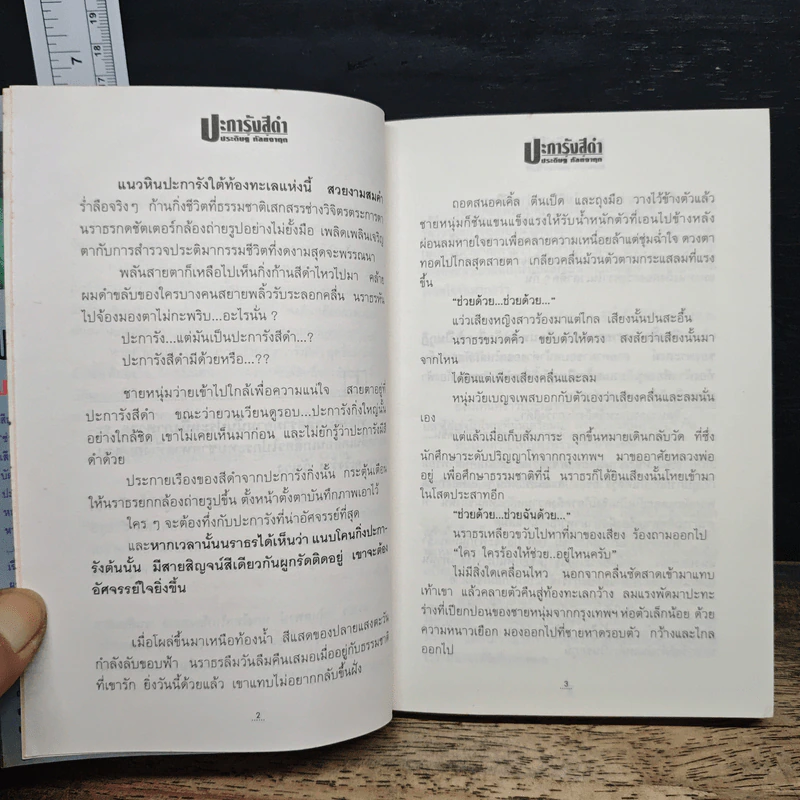 ปะการังสีดำ
ประดิษฐ์ กัลย์จาฤก
แนวหินปะการังใต้ท้องทะเลแห่งนี้ สวยงามสมคำ
ร่ำลือจริงๆ ก้านกิ่งชีวิตที่ธรรมชาติเสกสรรช่างวิจิตรตระการตา
นราธรกดชัตเตอร์กล้องถ่ายรูปอย่างไม่ยั้งมือ เพลิดเพลินเจริญ
ตากับการสำรวจประติมากรรมชีวิตที่งดงามสุดจะพรรณนา
พลันสายตาก็เหลือไปเห็นกิ่งก้านสีดำไหวไปมา คล้าย
ผมดำขลับของใครบางคนสยายพลิ้วรับระลอกคลื่น นราธรหัน
ไปจ้องมองตาไม่กะพริบ...อะไรนั่น ?
ปะการัง...แต่มันเป็นปะการังสีดำ...?
ปะการังสีดำมีด้วยหรือ...??
ชายหนุ่มว่ายเข้าไปใกล้เพื่อความแน่ใจ สายตาอยู่ที่
ปะการังสีดำ ขณะว่ายวนเวียนดูรอบ...ปะการังกิ่งใหญ่นั้น
อย่างใกล้ชิด เขาไม่เคยเห็นมาก่อน และไม่ยักรู้ว่าปะการังมีสี
ดำด้วย
ประกายเรืองของสีดำจากปะการังกิ่งนั้น กระตุ้นเตือน
ให้นราธรยกกล้องถ่ายรูปขึ้น ตั้งหน้าตั้งตาบันทึกภาพเอาไว้
ใคร ๆ จะต้องทึ่งกับปะการังที่น่าอัศจรรย์ที่สุด
และหากเวลานั้นนราธรได้เห็นว่า แนบโคนกิ่งปะกา-
รังต้นนั้น มีสายสิญจน์สีเดียวกันผูกรัดติดอยู่ เขาจะต้อง
อัศจรรย์ใจยิ่งขึ้น
เมื่อโผล่ขึ้นมาเหนือท้องน้ำ สีแสดของปลายแสงตะวัน
กำลังลับขอบฟ้า นราธรลืมวันลืมคืนเสมอเมื่ออยู่กับธรรมชาติ
ที่เขารัก ยิ่งวันนี้ด้วยแล้ว เขาแทบไม่อยากกลับขึ้นฝั่ง
2
ปะการังสีดำ
ประดิษฐ์ กัลย์จาฤก
ถอดสนอคเคิ้ล ตีนเป็ด และถุงมือ วางไว้ข้างตัวแล้ว
ชายหนุ่มก็ชันแขนแข็งแรงให้รับน้ำหนักตัวที่เอนไปข้างหลัง
ผ่อนลมหายใจยาวเพื่อคลายความเหนื่อยล้าแต่ชุ่มฉ่ำใจ ดวงตา
ทอดไปไกลสุดสายตา เกลียวคลื่นม้วนตัวตามกระแสลมที่แรง
ขึ้น
"ช่วยด้วย...ช่วยด้วย..."
แว่วเสียงหญิงสาวร้องมาแต่ไกล เสียงนั้นปนสะอื้น
นราธรขมวดคิ้ว ขยับตัวให้ตรง สงสัยว่าเสียงนั้นมา
จากไหน
ได้ยินแต่เพียงเสียงคลื่นและลม
หนุ่มวัยเบญจเพสบอกกับตัวเองว่าเสียงคลื่นและลมนั่น
เอง
แต่แล้วเมื่อเก็บสัมภาระ ลุกขึ้นหมายเดินกลับวัด ที่ซึ่ง
นักศึกษาระดับปริญญาโทจากกรุงเทพฯ มาขออาศัยหลวงพ่อ
อยู่ เพื่อศึกษาธรรมชาติที่นี่ นราธรก็ได้ยินเสียงนั้นโหยเข้ามา
ในโสตประสาทอีก
"ช่วยด้วย...ช่วยฉันด้วย..."
นราธรเหลียวขวับไปหาที่มาของเสียง ร้องถามออกไป
"ใคร ใครร้องให้ช่วย..อยู่ไหนครับ"
ไม่มีสิ่งใดเคลื่อนไหว นอกจากคลื่นซัดสาดเข้ามาแทบ
เท้าเขา แล้วคลายตัวคืนสู่ท้องทะเลกว้าง ลมแรงพัดมาปะทะ
ร่างที่เปียกปอนของชายหนุ่มจากกรุงเทพฯ ห่อตัวเล็กน้อย ด้วย
ความหนาวเยือก มองออกไปที่ชายหาดรอบตัว กว้างและไกล
ออกไป
3
7
17
18
19